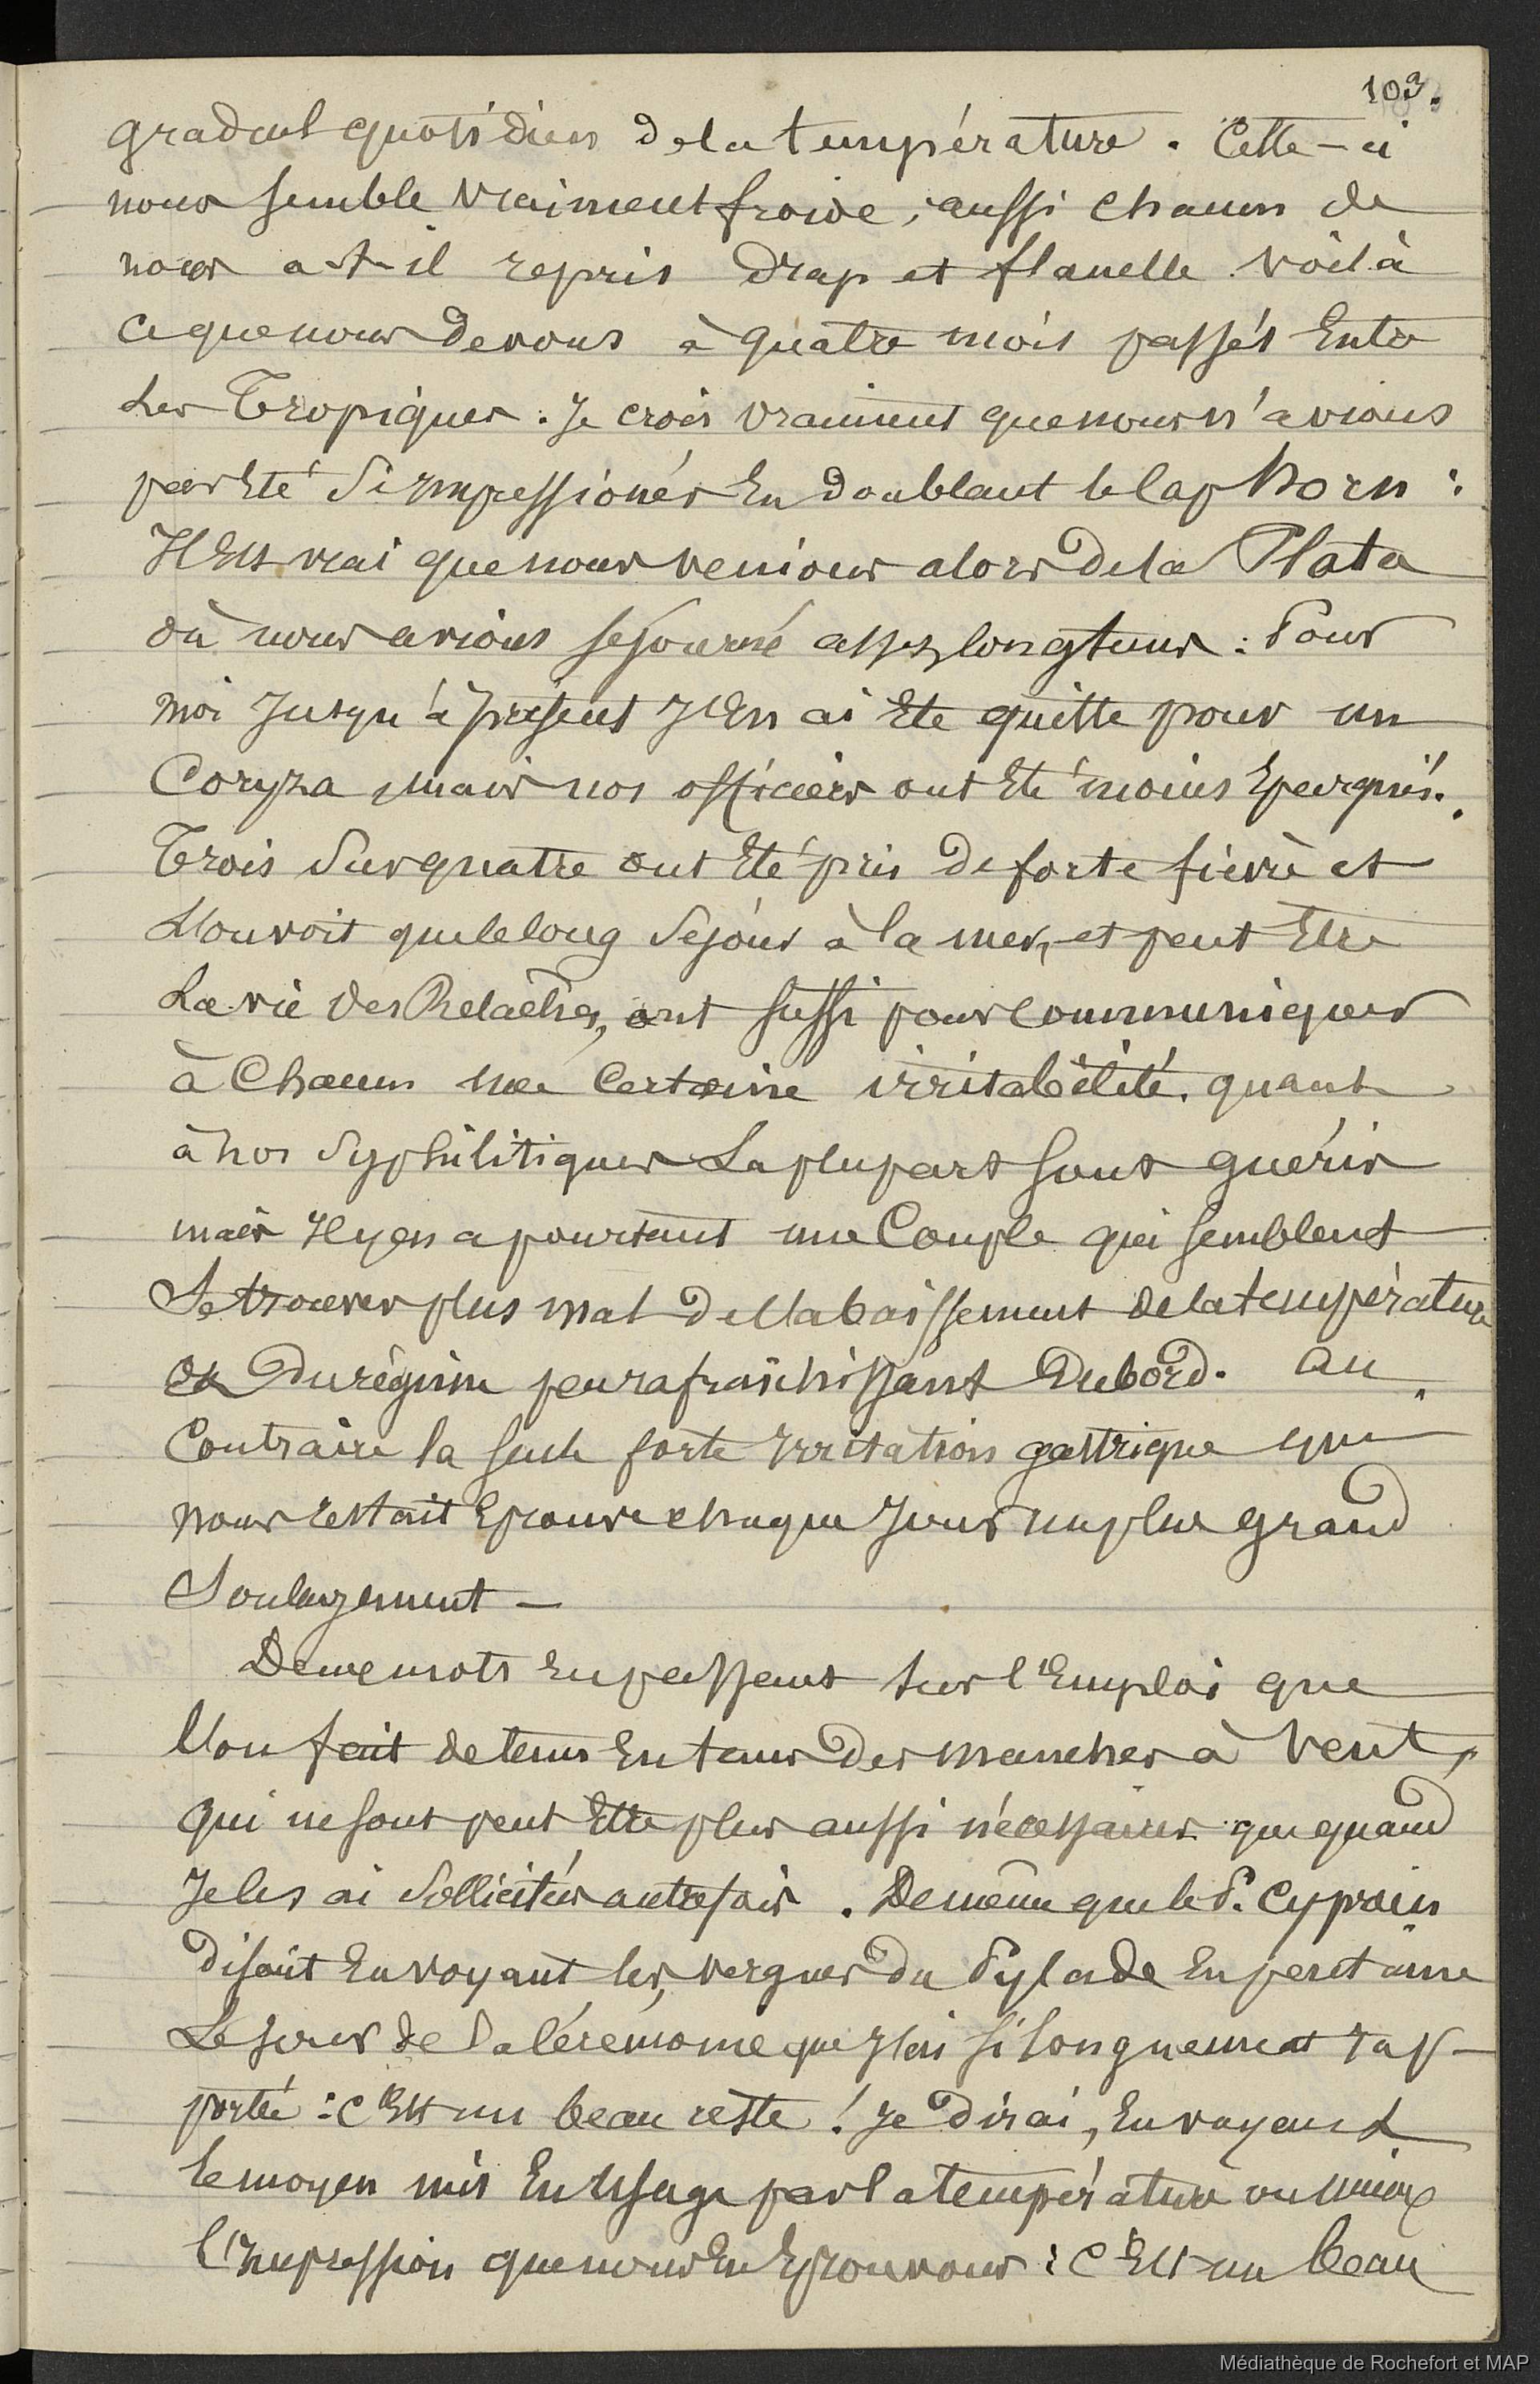 103.
graduel quotidien de la température. Celle-ci
nous semble vraiment froide; aussi chacun de
nous a-t-il repris drap et flanelle. Voilà
ce que nous devons à quatre mois passés Entre
Les Tropiques. Je crois vraiment que nous n'avions
pas Eté Si Impressionés En doublant le Cap horn :
Il Est vrai que nous venions alors de la Plata
où nous avions séjourné assez longtems : Pour
moi Jusqu'à présent J'En ai Eté quitte pour un
Coryza, mais nos officiers ont Eté moins Epargnés.
Trois Sur quatre ont Eté pris de forte fièvre et
L'on voit que le long Séjour à la mer, et peut Etre
La vie des Relaches, ont suffi pour communiquer
à Chacun une Certaine irritabilité. quant
à nos Syphilitiques La plupart sont guéris
mais Il y en a pourtant une Couple qui semblent
Se trouver plus mal de l'abaissement de la température
et Du régime peu rafraichissant Du bord. Au
Contraire la seule forte Irritation gastrique qui
nous restait Eprouve chaque Jour un plus grand
Soulagement —
Deux mots En passant sur l'Emploi que
l'on fait de tems En tems Des manches à Vent,
qui ne sont peut Etre plus aussi nécessaires que quand
Je les ai Sollicitées autrefois. De même que le P. Cyprien
disait En voyant les vergues du Pylade En pentenne
Le jour de la Cérémonie que J'ai si longuement rap-
portée : C'Est un beau reste ! Je dirai, En voyant
le moyen mis En Usage par la température ou mieux
l'Impression que nous En Eprouvons : C'Est un beau
Médiathèque de Rochefort et MAP